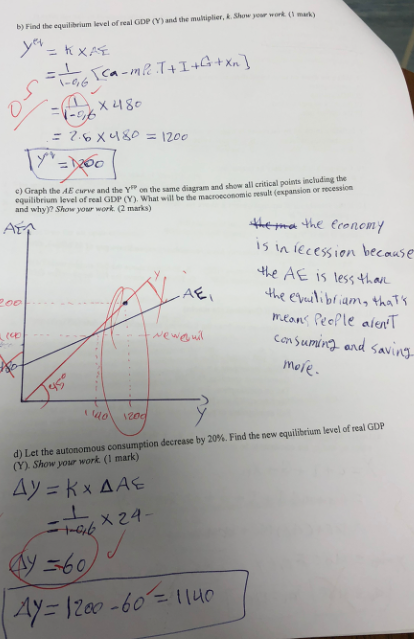 b) Find the equilibrium level of real GDP (Y) and the multiplier, k. Show your work. (1 mark)
Y^eq = K x AE
= 1/1-0,6 [Ca - mPC.T + I + G + Xn]
0.5
= 1/1-0,6 x 480
= 2.5 x 480 = 1200
Y^eq = 1200
c) Graph the AE curve and the Y^ep on the same diagram and show all critical points including the
equilibrium level of real GDP (Y). What will be the macroeconomic result (expansion or recession
and why)? Show your work. (2 marks)
the economy
is in recession because
the AE is less than
the equilibriam, that's
means People aren't
consuming and saving
more.
AE
Y
AE1
200
New equil
480
45°
1140 1200
Y
d) Let the autonomous consumption decrease by 20%. Find the new equilibrium level of real GDP
(Y). Show your work. (1 mark)
ΔY = K x ΔAE
= 1/1-0,6 x 24
ΔY = 60
ΔY = 1200 - 60 = 1140